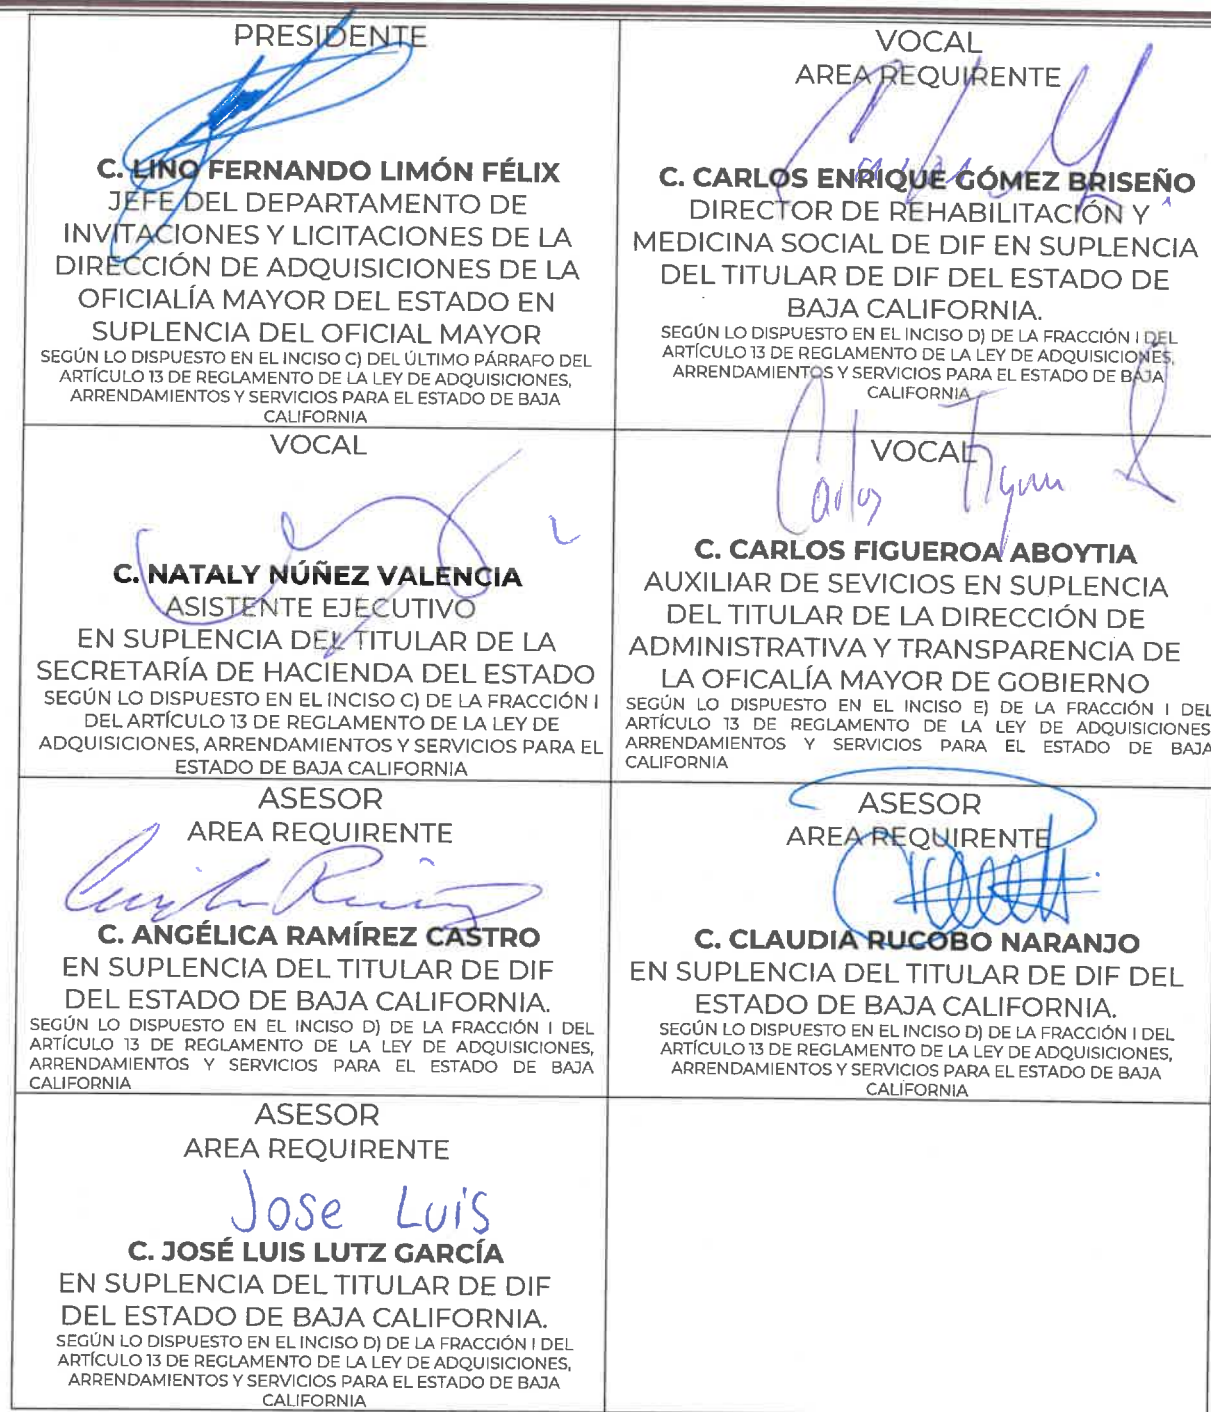 PRESIDENTE
C. LINO FERNANDO LIMÓN FÉLIX
JEFE DEL DEPARTAMENTO DE
INVITACIONES Y LICITACIONES DE LA
DIRECCIÓN DE ADQUISICIONES DE LA
OFICIALÍA MAYOR DEL ESTADO EN
SUPLENCIA DEL OFICIAL MAYOR
SEGÚN LO DISPUESTO EN EL INCISO C) DEL ÚLTIMO PÁRRAFO DEL
ARTÍCULO 13 DE REGLAMENTO DE LA LEY DE ADQUISICIONES,
ARRENDAMIENTOS Y SERVICIOS PARA EL ESTADO DE BAJA
CALIFORNIA
VOCAL
AREA REQUIRENTE
C. CARLOS ENRIQUE GÓMEZ BRISEÑO
DIRECTOR DE REHABILITACIÓN Y
MEDICINA SOCIAL DE DIF EN SUPLENCIA
DEL TITULAR DE DIF DEL ESTADO DE
BAJA CALIFORNIA.
SEGÚN LO DISPUESTO EN EL INCISO D) DE LA FRACCIÓN I DEL
ARTÍCULO 13 DE REGLAMENTO DE LA LEY DE ADQUISICIONES,
ARRENDAMIENTOS Y SERVICIOS PARA EL ESTADO DE BAJA
CALIFORNIA
VOCAL
C. NATALY NÚÑEZ VALENCIA
ASISTENTE EJECUTIVO
EN SUPLENCIA DEL TITULAR DE LA
SECRETARÍA DE HACIENDA DEL ESTADO
SEGÚN LO DISPUESTO EN EL INCISO C) DE LA FRACCIÓN I
DEL ARTÍCULO 13 DE REGLAMENTO DE LA LEY DE
ADQUISICIONES, ARRENDAMIENTOS Y SERVICIOS PARA EL
ESTADO DE BAJA CALIFORNIA
VOCAL
Carlos
C. CARLOS FIGUEROA ABOYTIA
AUXILIAR DE SEVICIOS EN SUPLENCIA
DEL TITULAR DE LA DIRECCIÓN DE
ADMINISTRATIVA Y TRANSPARENCIA DE
LA OFICALÍA MAYOR DE GOBIERNO
SEGÚN LO DISPUESTO EN EL INCISO E) DE LA FRACCIÓN I DEL
ARTÍCULO 13 DE REGLAMENTO DE LA LEY DE ADQUISICIONES
ARRENDAMIENTOS Y SERVICIOS PARA EL ESTADO DE BAJA
CALIFORNIA
ASESOR
AREA REQUIRENTE
C. ANGÉLICA RAMÍREZ CASTRO
EN SUPLENCIA DEL TITULAR DE DIF
DEL ESTADO DE BAJA CALIFORNIA.
SEGÚN LO DISPUESTO EN EL INCISO D) DE LA FRACCIÓN I DEL
ARTÍCULO 13 DE REGLAMENTO DE LA LEY DE ADQUISICIONES,
ARRENDAMIENTOS Y SERVICIOS PARA EL ESTADO DE BAJA
CALIFORNIA
ASESOR
AREA REQUIRENTE
C. CLAUDIA RUCOBO NARANJO
EN SUPLENCIA DEL TITULAR DE DIF DEL
ESTADO DE BAJA CALIFORNIA.
SEGÚN LO DISPUESTO EN EL INCISO D) DE LA FRACCIÓN I DEL
ARTÍCULO 13 DE REGLAMENTO DE LA LEY DE ADQUISICIONES,
ARRENDAMIENTOS Y SERVICIOS PARA EL ESTADO DE BAJA
CALIFORNIA
ASESOR
AREA REQUIRENTE
Jose Luis
C. JOSÉ LUIS LUTZ GARCÍA
EN SUPLENCIA DEL TITULAR DE DIF
DEL ESTADO DE BAJA CALIFORNIA.
SEGÚN LO DISPUESTO EN EL INCISO D) DE LA FRACCIÓN I DEL
ARTÍCULO 13 DE REGLAMENTO DE LA LEY DE ADQUISICIONES,
ARRENDAMIENTOS Y SERVICIOS PARA EL ESTADO DE BAJA
CALIFORNIA